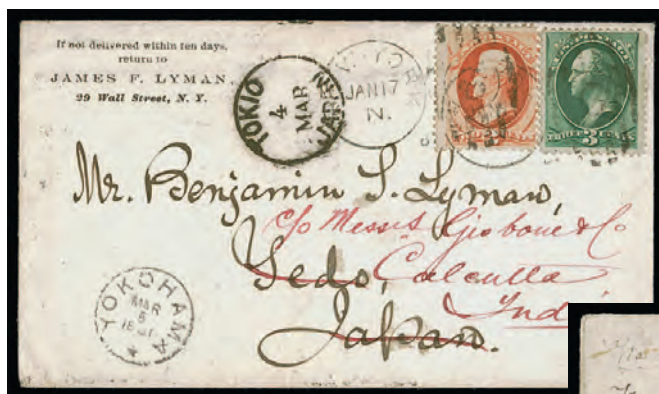 If not delivered within ten days,
return to
JAMES F. LYMAN,
29 Wall Street, N. Y.
TOKIO
4
MAR
JAPAN
N. YORK
JAN 17
N.
3
Mr. Benjamin S. Lyman,
c/o Messrs Gisborne & Co
Yedo, Calcutta
India
Japan.
YOKOHAMA
MAR
5